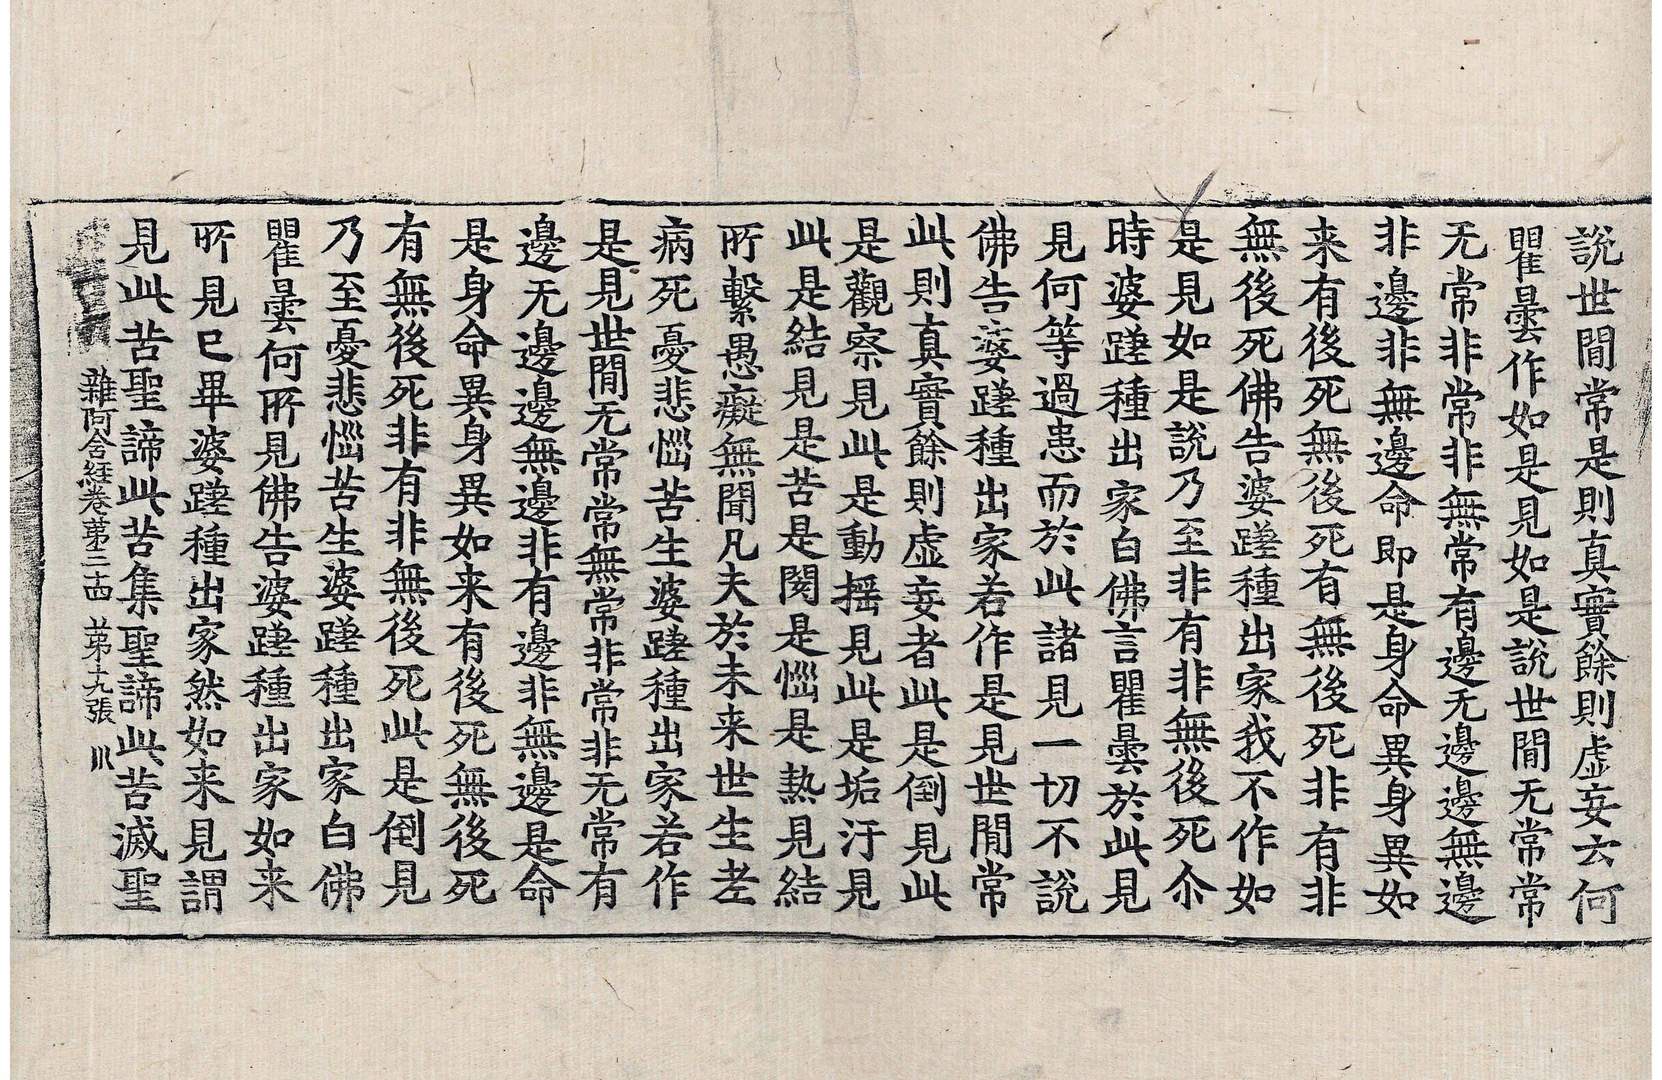 說世間常是則真實餘則虛妄云何
瞿曇作如是見如是說世間无常常
无常非常非無常有邊无邊邊無邊
非邊非無邊命即是身命異身異如
来有後死無後死有無後死非有非
無後死佛告婆蹉種出家我不作如
是見如是說乃至非有非無後死尒
時婆蹉種出家白佛言瞿曇於此見
見何等過患而於此諸見一切不說
佛告婆蹉種出家若作是見世間常
此則真實餘則虛妄者此是倒見此
是觀察見此是動搖見此是垢汙見
此是結見是苦是閡是惱是熱見結
所繫愚癡無聞凡夫於未来世生老
病死憂悲惱苦生婆蹉種出家若作
是見世間无常常無常非常非无常有
邊无邊邊無邊非有邊非無邊是命
是身命異身異如来有後死無後死
有無後死非有非無後死此是倒見
乃至憂悲惱苦生婆蹉種出家白佛
瞿曇何所見佛告婆蹉種出家如来
所見已畢婆蹉種出家然如来見謂
見此苦聖諦此苦集聖諦此苦滅聖
雜阿含經卷第三十四 第十九張 川